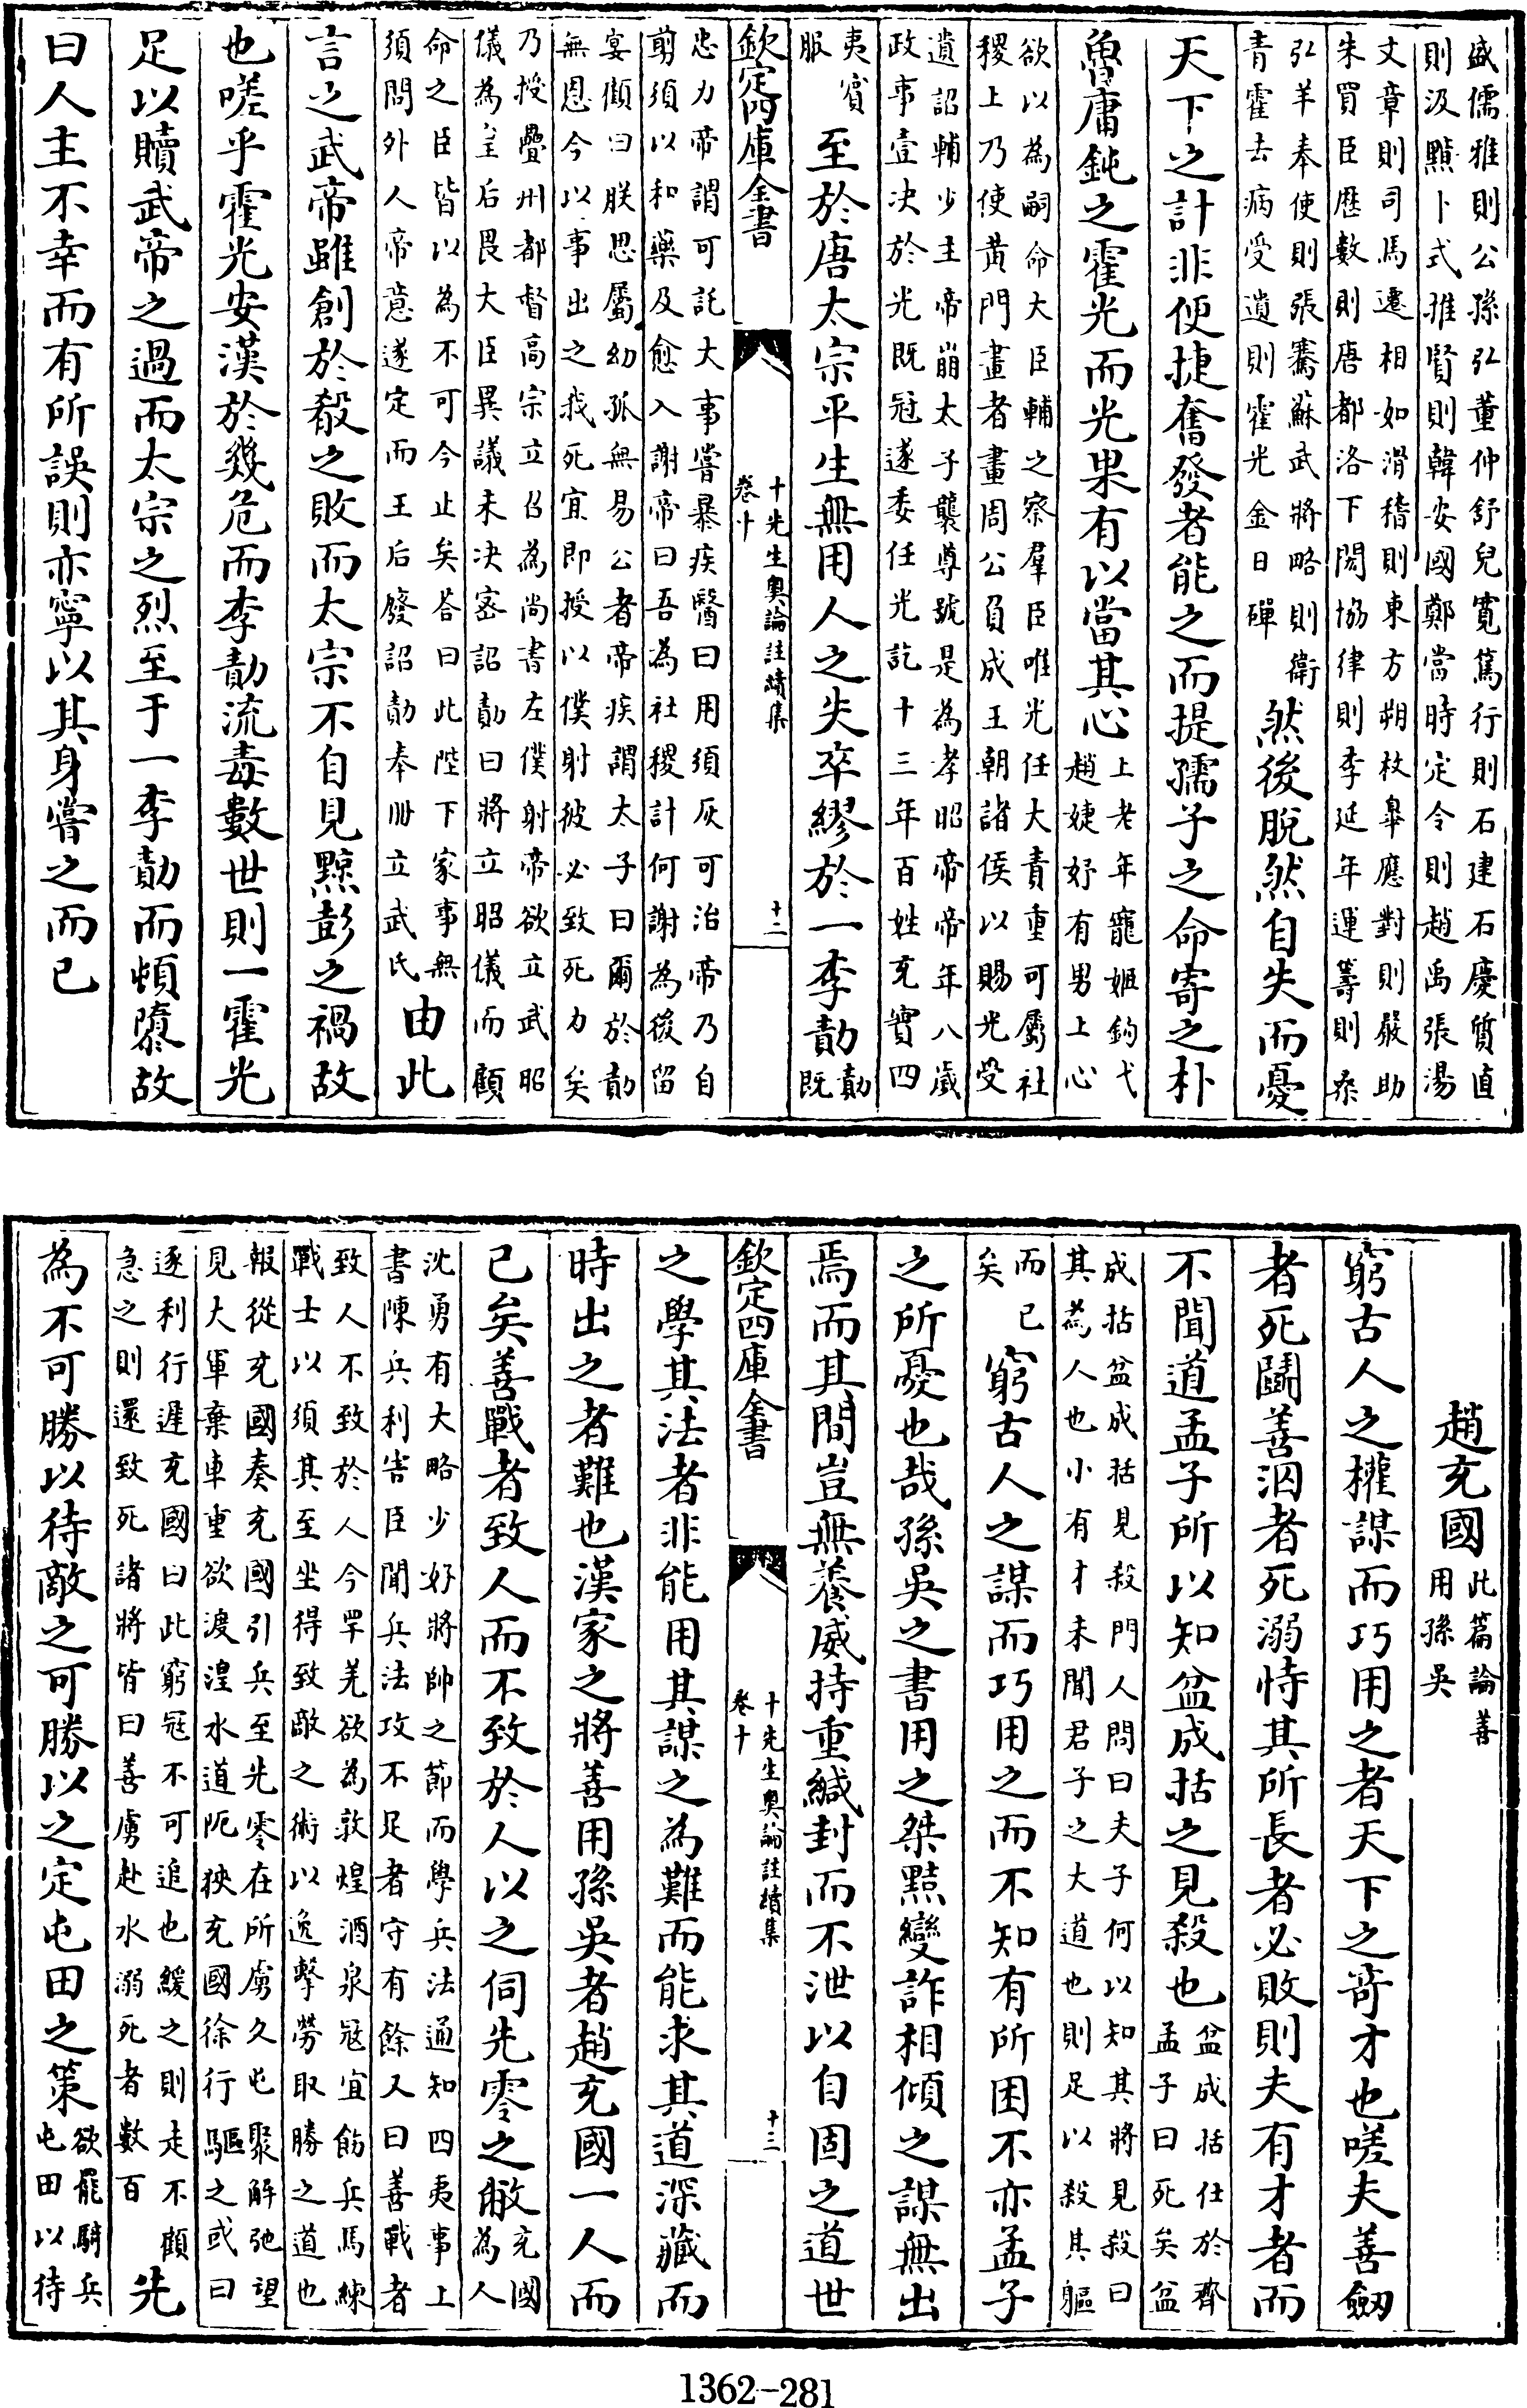 盛儒雅則公孫弘董仲舒兒寛篤行則石建石慶質直
則汲黯卜式推賢則韓安國鄭當時定令則趙禹張湯
文章則司馬遷相如滑稽則東方朔枚臯應對則嚴助
朱買臣歴數則唐都洛下閎協律則李延年運籌則桑
弘羊奉使則張騫蘇武將略則衛
青霍去病受遺則霍光金日磾
然後脱然自失而憂
天下之計非便捷奮發者能之而提孺子之命寄之朴
魯庸鈍之霍光而光果有以當其心
上老年寵姬鈎弋
趙婕妤有男上心
欲以為嗣命大臣輔之察羣臣唯光任大責重可屬社
稷上乃使黄門畫者畫周公負成王朝諸侯以賜光受
遺詔輔少主帝崩太子襲尊號是為孝昭帝帝年八歲
政事壹决於光既冠遂委任光訖十三年百姓充實四
夷賓
服
至於唐太宗平生無用人之失卒繆於一李勣
勣
既
欽定四庫全書
十先生奧論註續集
卷十
十二
忠力帝謂可託大事嘗暴疾醫曰用須灰可治帝乃自
剪須以和藥及愈入謝帝曰吾為社稷計何謝為後留
宴顧曰朕思屬幼孤無易公者帝疾謂太子曰爾於勣
無恩今以事出之我死宜即授以僕射彼必致死力矣
乃授疊州都督高宗立召為尚書左僕射帝欲立武昭
儀為皇后畏大臣異議未决密詔勣曰將立昭儀而顧
命之臣皆以為不可今止矣荅曰此陛下家事無
須問外人帝意遂定而王后廢詔勣奉冊立武氏
由此
言之武帝雖創於殺之敗而太宗不自見黥彭之禍故
也嗟乎霍光安漢於幾危而李勣流毒數世則一霍光
足以贖武帝之過而太宗之烈至于一李勣而頓隳故
曰人主不幸而有所誤則亦寧以其身嘗之而已
趙充國
此篇論善
用孫吳
窮古人之權謀而巧用之者天下之竒才也嗟夫善劒
者死鬭善泅者死溺恃其所長者必敗則夫有才者而
不聞道孟子所以知盆成括之見殺也
盆成括仕於齊
孟子曰死矣盆
成括盆成括見殺門人問曰夫子何以知其將見殺曰
其為人也小有才未聞君子之大道也則足以殺其軀
而已
矣
窮古人之謀而巧用之而不知有所困不亦孟子
之所憂也哉孫吳之書用之桀黠變詐相傾之謀無出
焉而其間豈無養威持重緘封而不泄以自固之道世
欽定四庫全書
十先生奧論註續集
卷十
十三
之學其法者非能用其謀之為難而能求其道深藏而
時出之者難也漢家之將善用孫吳者趙充國一人而
已矣善戰者致人而不致於人以之伺先零之敝
充國
為人
沈勇有大略少好將帥之節而學兵法通知四夷事上
書陳兵利害臣聞兵法攻不足者守有餘又曰善戰者
致人不致於人今罕羌欲為敦煌酒泉冦宜飭兵馬練
戰士以須其至坐得致敵之術以逸擊勞取勝之道也
報從充國奏充國引兵至先零在所虜久屯聚解弛望
見大軍棄車重欲渡湟水道阨狹充國徐行驅之或曰
逐利行遲充國曰此窮冦不可追也緩之則走不顧
急之則還致死諸將皆曰善虜赴水溺死者數百
先
為不可勝以待敵之可勝以之定屯田之策
欲罷騎兵
屯田以待
1362-281